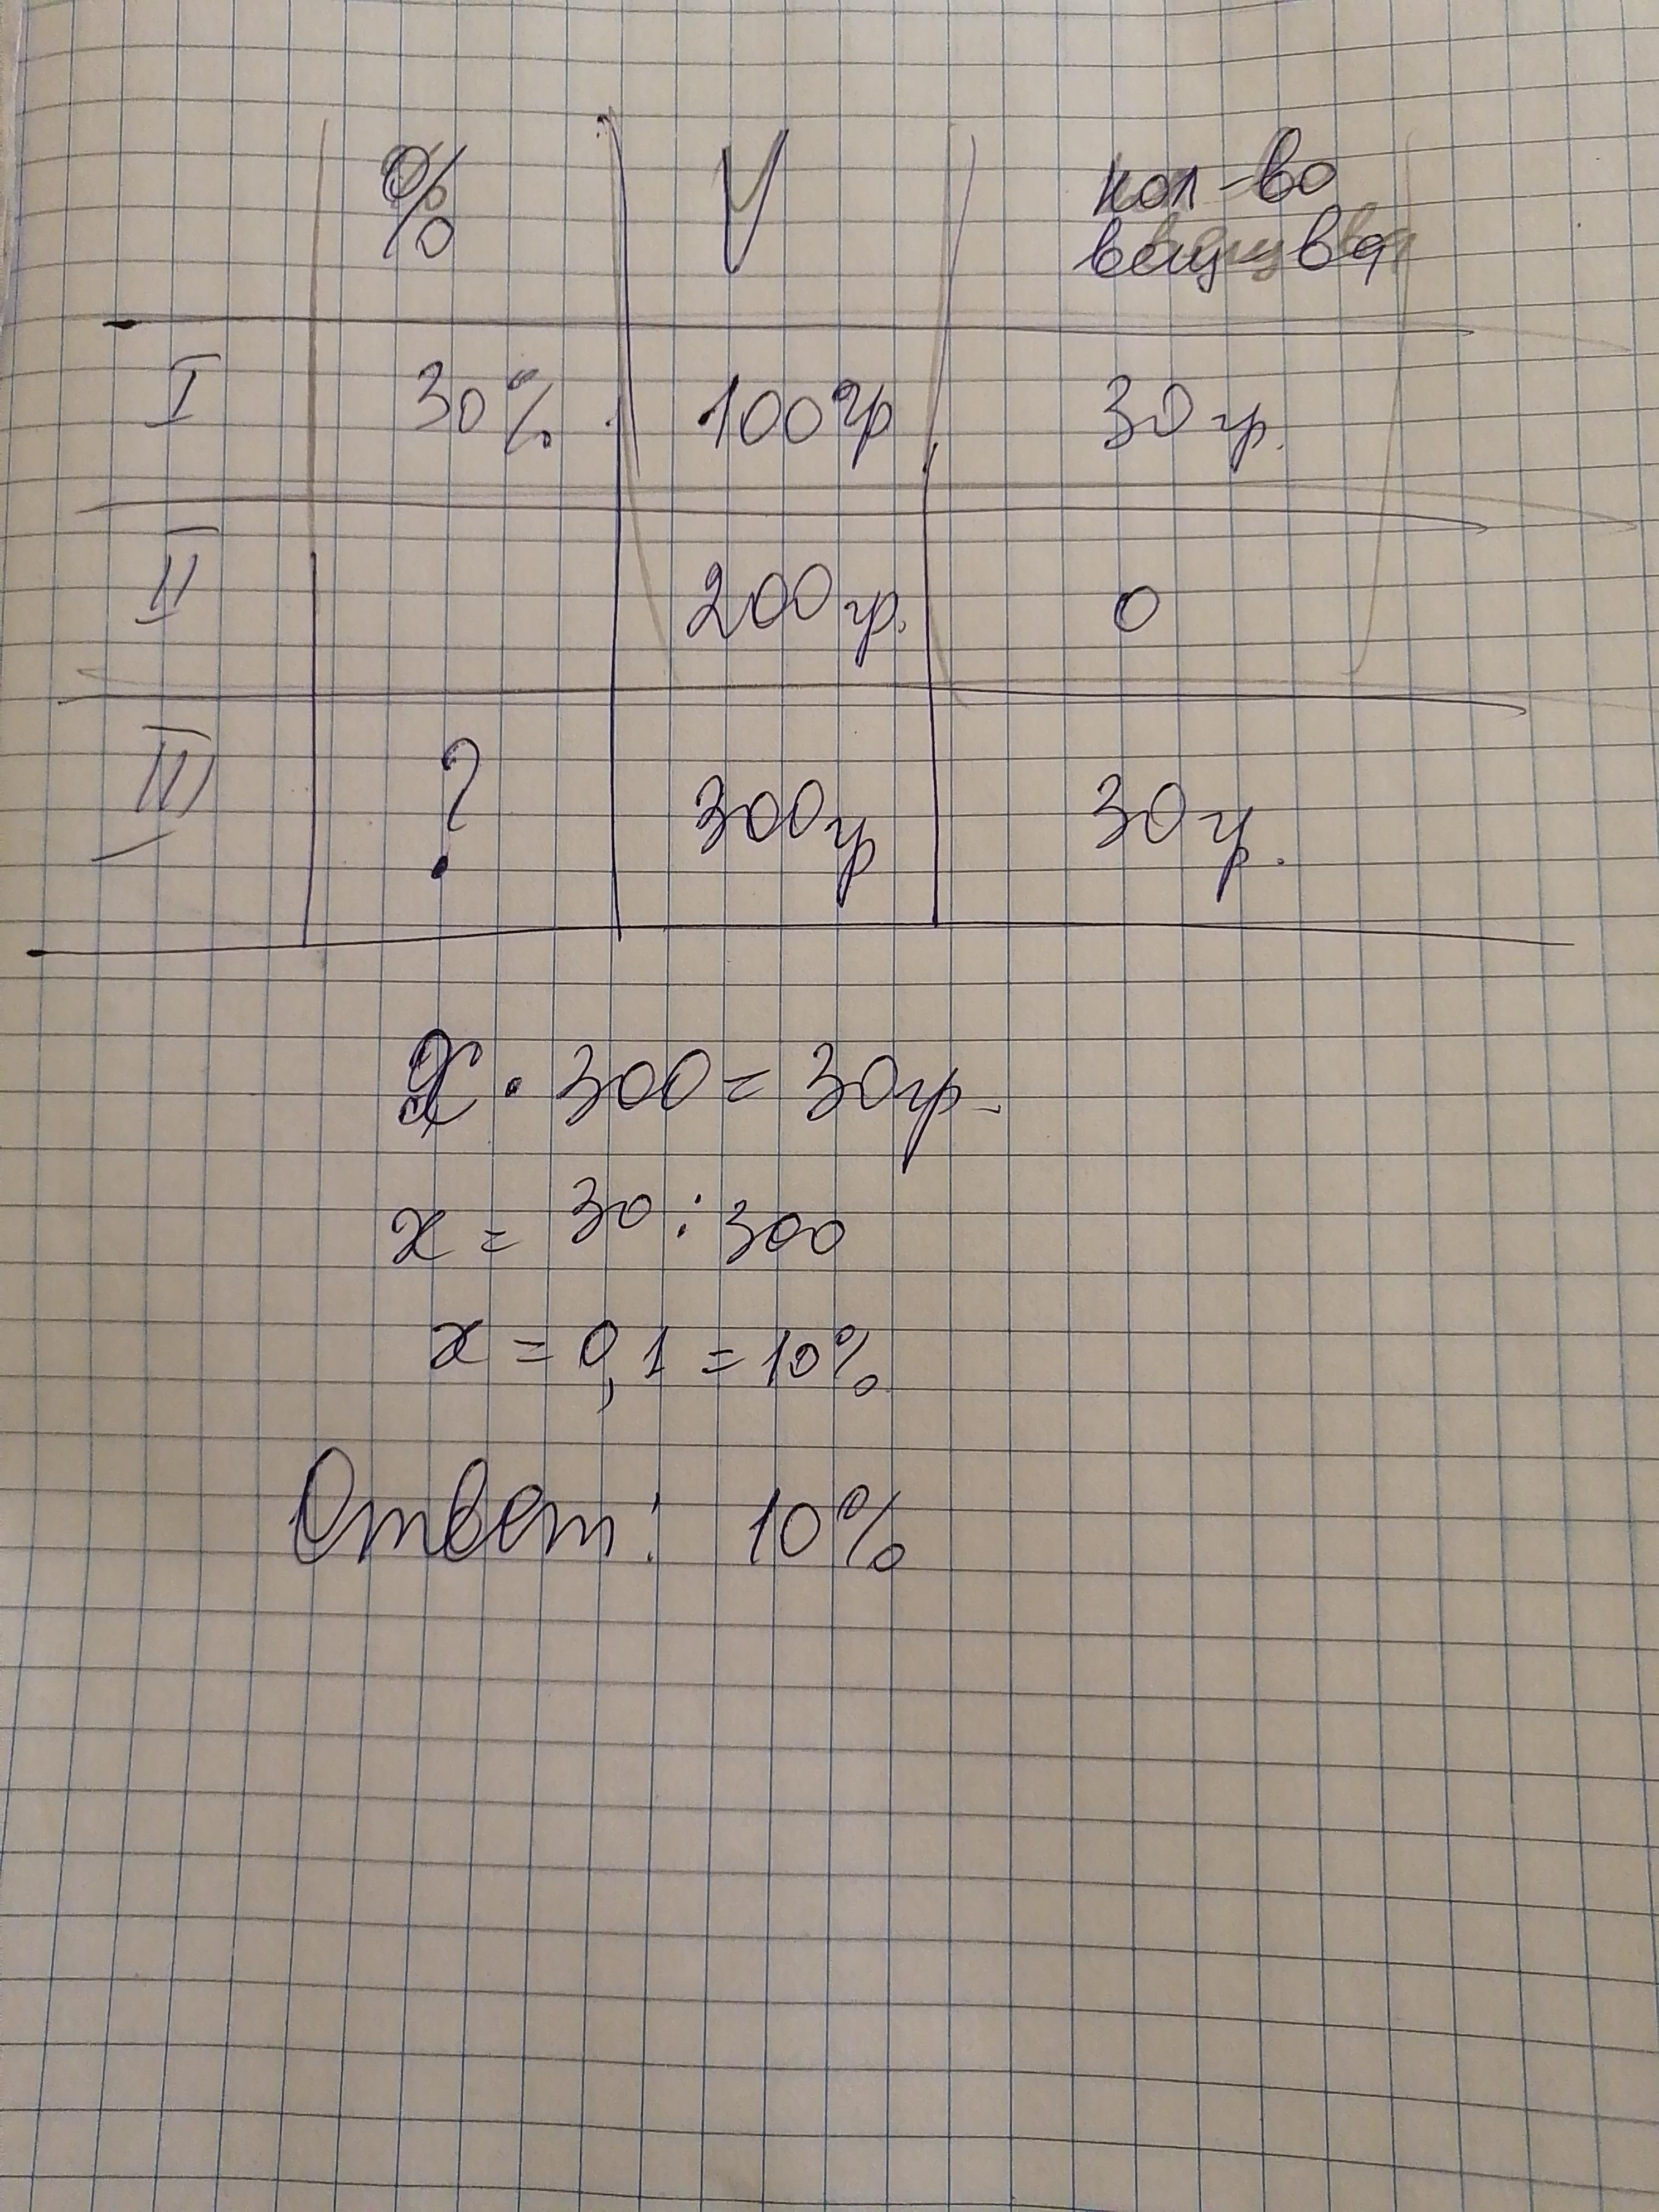 % V кол-во
вещ-ва
I 30% 100гр 30гр.
II 200гр. 0
III ? 300гр 30гр.
x · 300 = 30гр.
x = 30 : 300
x = 0,1 = 10%
Ответ: 10%